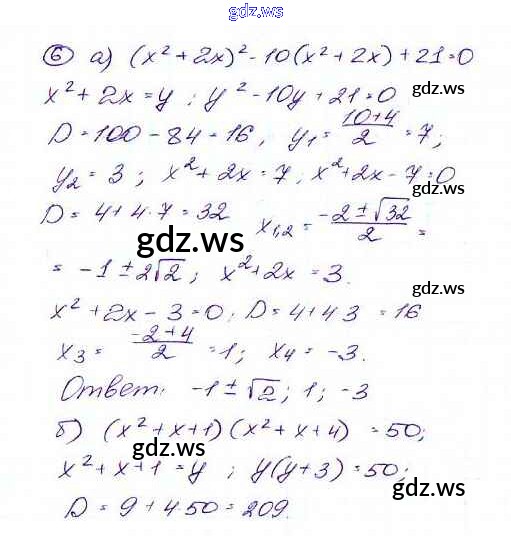 gdz.ws
6 а) (x² + 2x)² - 10(x² + 2x) + 21 = 0
gdz.ws
x² + 2x = y ; y² - 10y + 21 = 0
D = 100 - 84 = 16, y₁ = (10+4)/2 = 7;
gdz.ws
y₂ = 3 ; x² + 2x = 7 ; x² + 2x - 7 = 0
gdz.ws
D = 4 + 4·7 = 32 x₁,₂ = (-2 ± √32)/2 =
gdz.ws
= -1 ± 2√2 ; x² + 2x = 3.
x² + 2x - 3 = 0; D = 4 + 4 3 = 16
gdz.ws
x₃ = (-2+4)/2 = 1; x₄ = -3.
gdz.ws
Ответ: -1 ± √2 ; 1 ; -3
б) (x² + x + 1) (x² + x + 4) = 50;
gdz.ws
x² + x + 1 = y ; y(y + 3) = 50;
gdz.ws
D = 9 + 4·50 = 209.